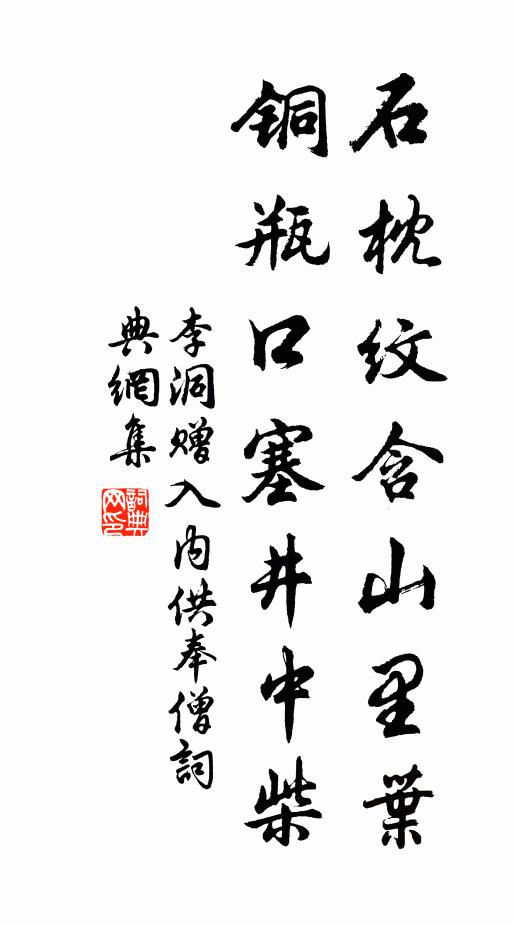 石枕纹含山里葉
铜瓶口塞井中柴
李洞赠入内供奉僧詞
典網集
詞典
网印